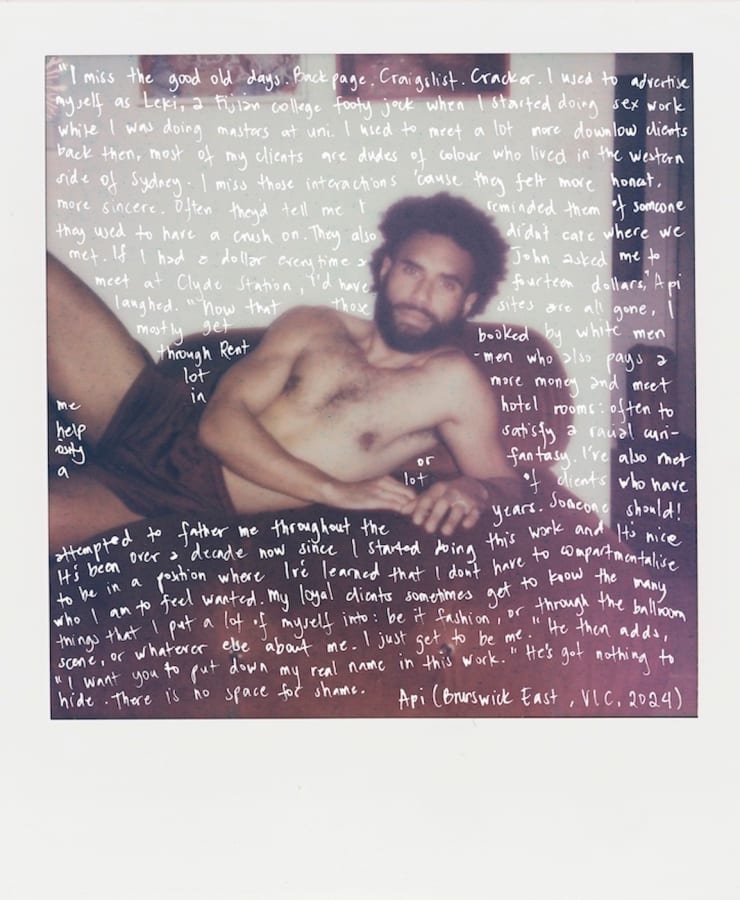 "I miss the good old days. Backpage. Craigslist. Cracker. I used to advertise
myself as Leki, a Fijian college footy jock when I started doing sex work
while I was doing masters at uni. I used to meet a lot more downlow clients
back then, most of my clients are dudes of colour who lived in the western
side of Sydney. I miss those interactions 'cause they felt more honest,
more sincere. Often they'd tell me I reminded them of someone
they used to have a crush on. They also didn't care where we
met. If I had a dollar everytime a John asked me to
meet at Clyde Station, I'd have fourteen dollars," Api
laughed. "Now that those sites are all gone, I
mostly get booked by white men
through Rent - men who also pays a
lot more money and meet
me in hotel rooms: often to
help satisfy a racial curi-
osity or fantasy. I've also met
a lot of clients who have
attempted to father me throughout the years. Someone should!
It's been over a decade now since I started doing this work and It's nice
to be in a position where I've learned that I don't have to compartmentalise
who I am to feel wanted. My loyal clients sometimes get to know the many
things that I put a lot of myself into: be it fashion, or through the ballroom
scene, or whatever else about me. I just get to be me." He then adds,
"I want you to put down my real name in this work." He's got nothing to
hide. There is no space for shame. Api (Brunswick East, VIC, 2024)